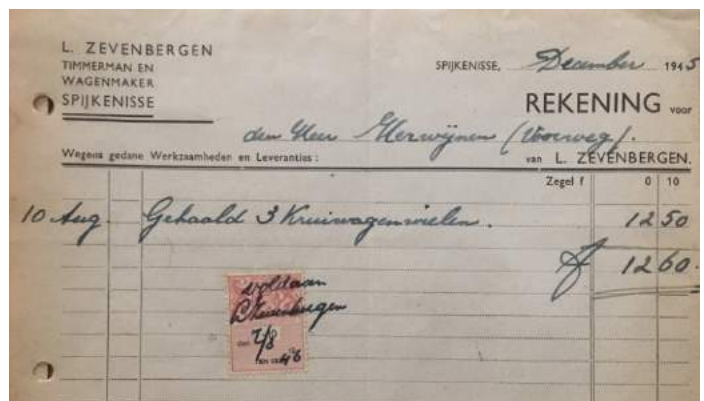 L. ZEVENBERGEN
TIMMERMAN EN
WAGENMAKER
SPIJKENISSE
SPIJKENISSE, December 1945
REKENING voor
den Heer Herwijnen (Voorweg).
Wegens gedane Werkzaamheden en Leveranties: van L. ZEVENBERGEN.
Zegel f 0 10
10 Aug. Gehaald 3 Kruiwagenwielen. 12 50
f 12 60.
voldaan
Zevenbergen
den 7/8
46